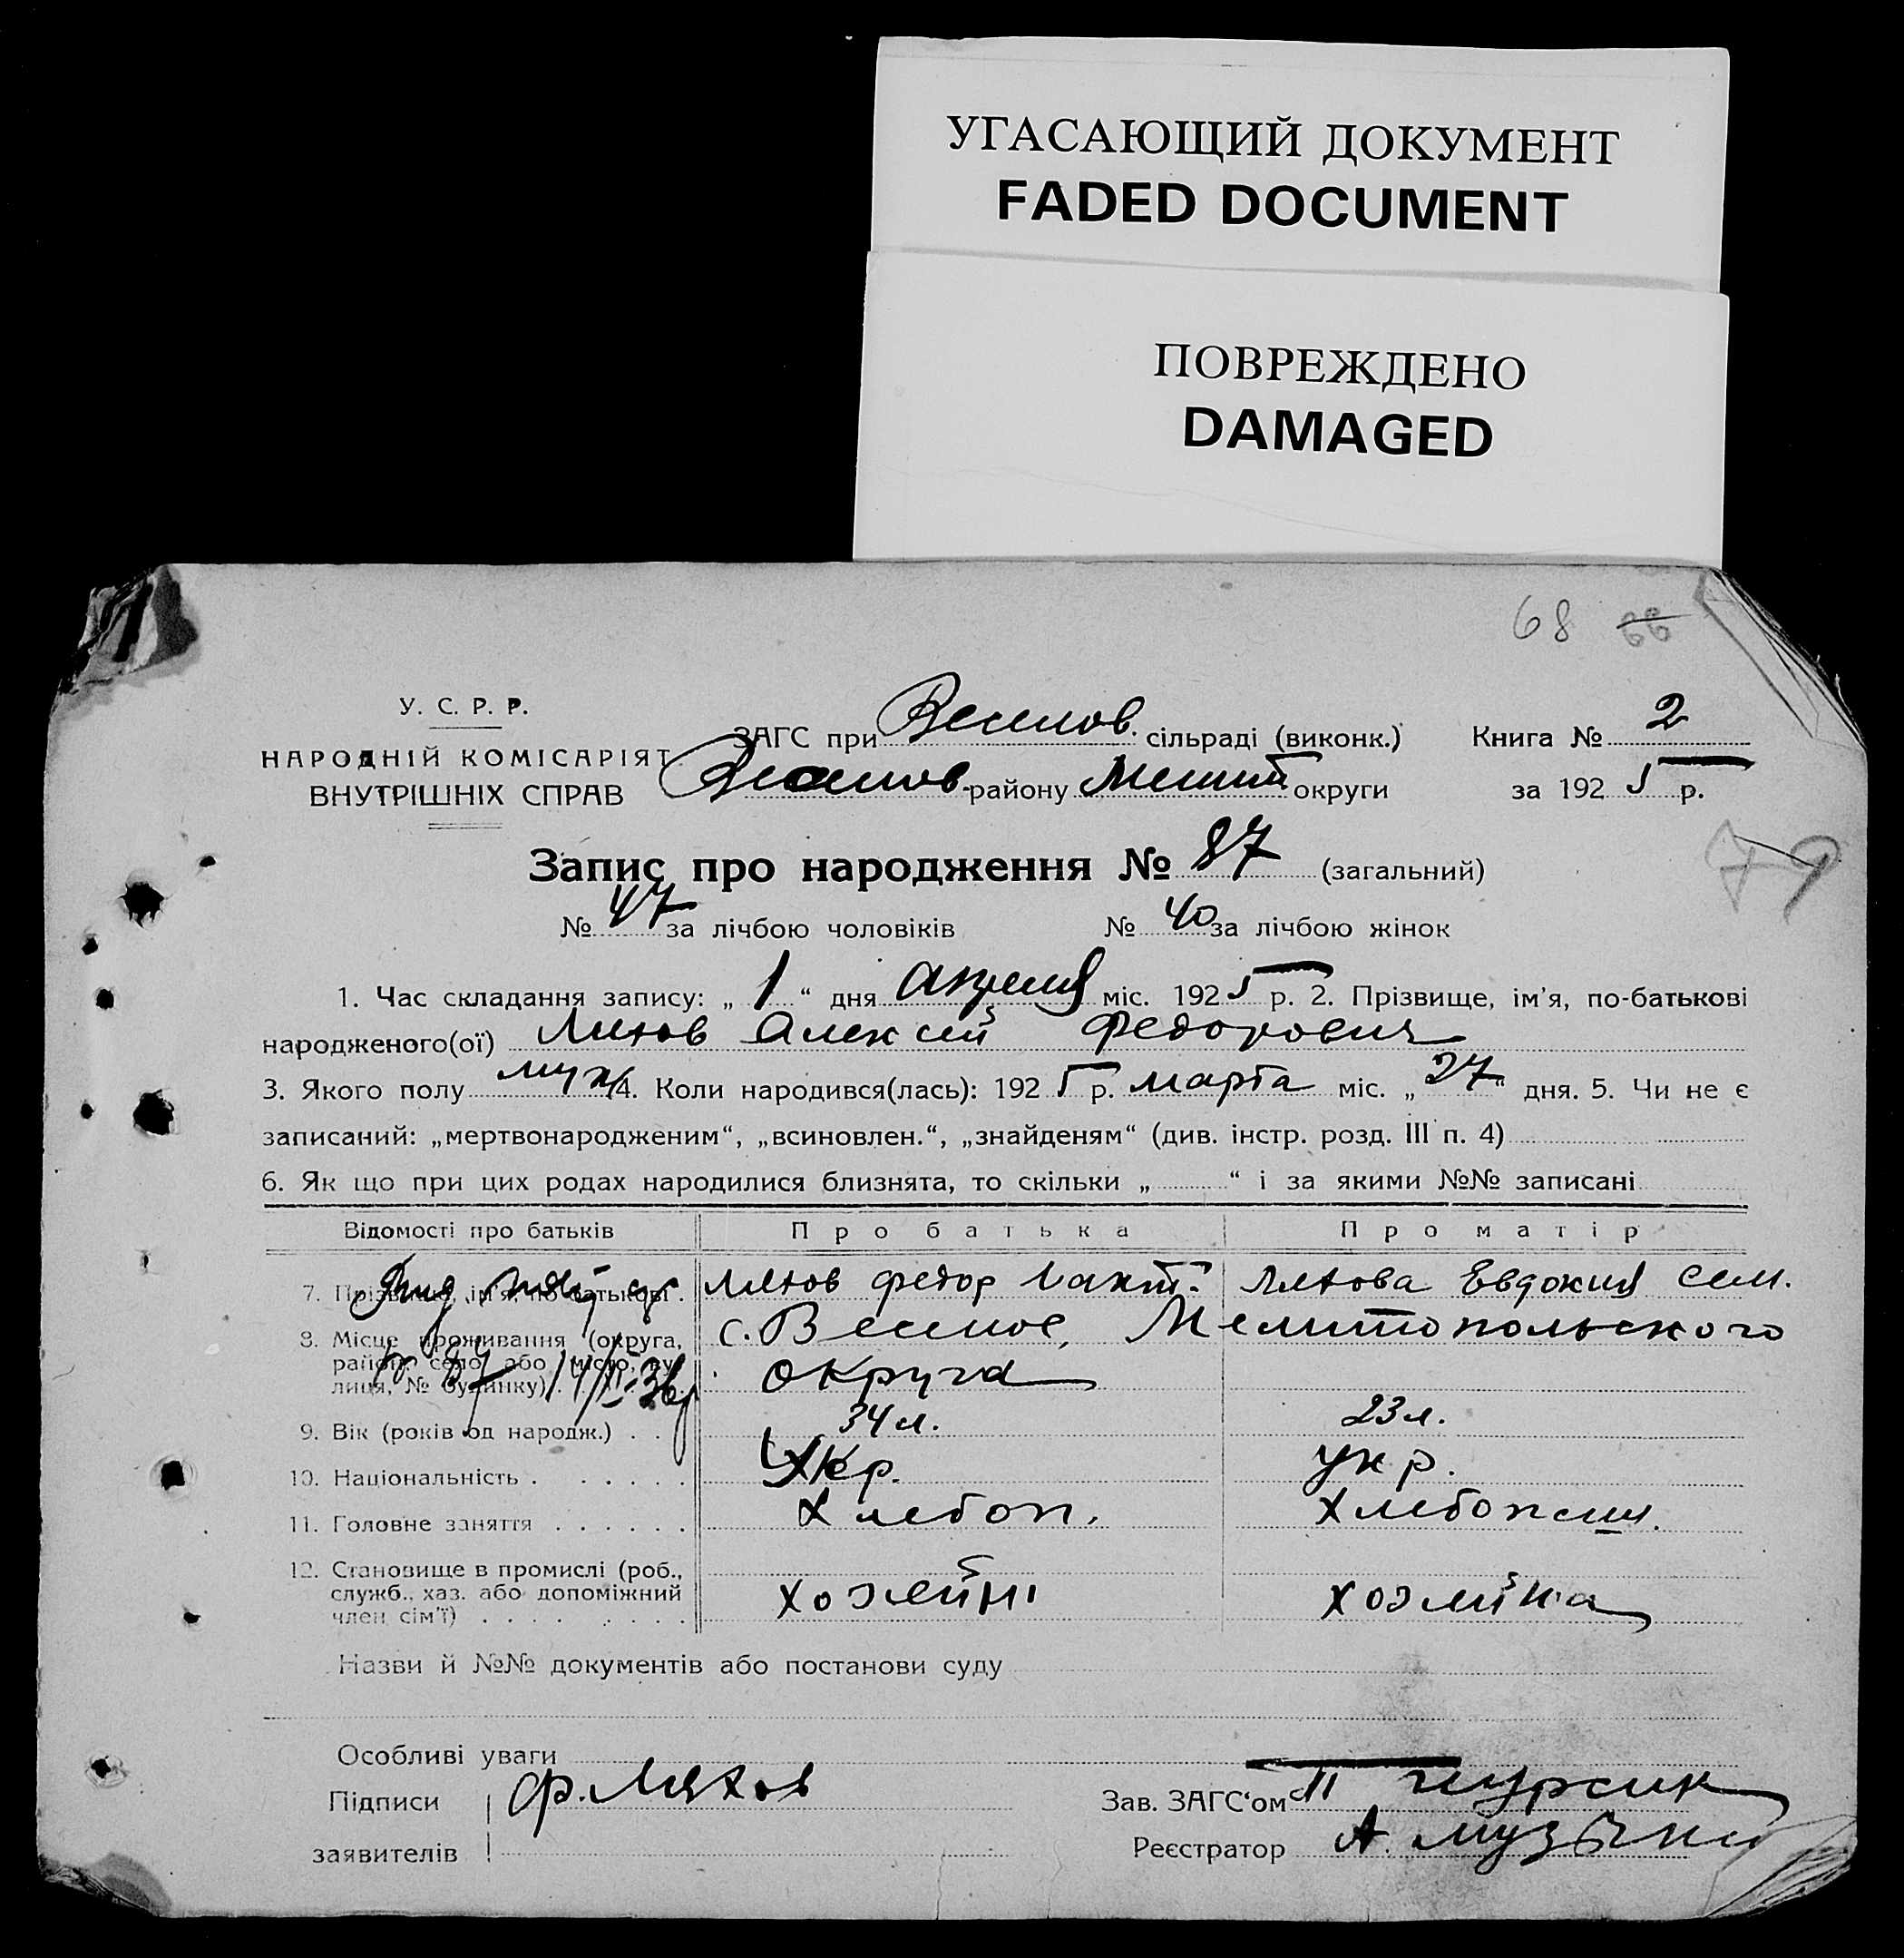 УГАСАЮЩИЙ ДОКУМЕНТ
FADED DOCUMENT
ПОВРЕЖДЕНО
DAMAGED
68 66
У. С. Р. Р.
НАРОДНІЙ КОМІСАРІЯТ
ВНУТРІШНІХ СПРАВ
ЗАГС при Веселов. сільраді (виконк.) Книга № 2
Веселов. району Мелит округи за 1925 р.
79
Запис про народження № 87 (загальний)
№ 47 за лічбою чоловіків № 40 за лічбою жінок
1. Час складання запису: „ 1 “ дня апреля міс. 1925 р. 2. Прізвище, ім'я, по-батькові
народженого(ої) Ляхов Алексей Федорович
3. Якого полу муж 4. Коли народився(лась): 1925 р. марта міс. „ 27 “ дня. 5. Чи не є
записаний: „мертвонародженим“, „всиновлен.“, „знайденям“ (див. інстр. розд. III п. 4)
6. Як що при цих родах народилися близнята, то скільки „ “ і за якими №№ записані
Відомості про батьків Про батька Про матір
7. Прізвище, ім'я, по батькові . Ляхов Федор Ляхова Евдокия Сем.
8. Місце проживання (округа, район, село або місто, вулиця, № будинку) с. Веселое, Мелитопольского
округа
9. Вік (років од народж.) . . 34 л. 23 л.
10. Національність . . . . . . Укр. укр.
11. Головне заняття . . . . . . Хлебоп. Хлебопаш.
12. Становище в промислі (роб.,
служб., хаз. або допоміжний
член сім'ї) . . . . . . . . хозяин хозяйка
Назви й №№ документів або постанови суду
Особливі уваги
Підписи Ф. Ляхов Зав. ЗАГС'ом
заявителів Реєстратор А.